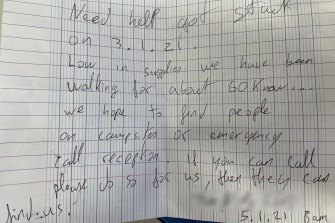 Need help got stuck
on 3.1.21.
Low in supplies we have been
walking for about 60km...
we hope to find people
on campsites or emergency
call reception. If you can call
please do so for us, then they can
find us.
5.1.21 8am